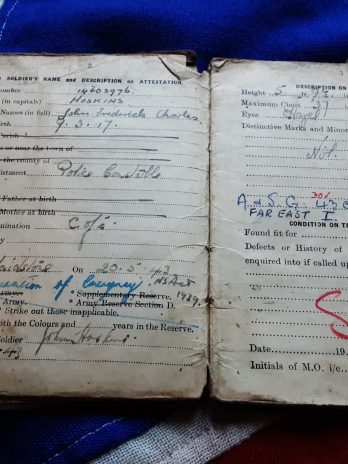 2
SOLDIER'S NAME and DESCRIPTION on ATTESTATION.
Number 14603976
(in capitals) HOSKINS
Names (in full) John Frederick Charles
9.3.17.
Parish
in or near the town of
the county of
Police Constable
Father at birth
Mother at birth
C of E
On 22.5.43
of Emergency NS Act
Supplementary Reserve. 1939.
Army. Army Reserve Section D.
Strike out those inapplicable.
with the Colours and years in the Reserve.
Soldier John Hoskins
3
DESCRIPTION ON
Height
Maximum Chest 37
Eyes Hazel
Distinctive Marks and Minor
Nil.
FAR EAST I.
CONDITION ON
Found fit for
Defects or History of
enquired into if called up
Date 19
Initials of M.O. i/c